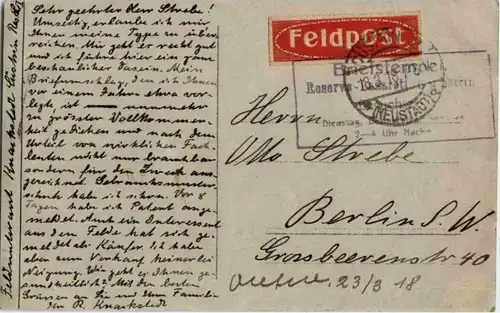 Sehr geehrter Herr Strebe!
Umseitig erlaube ich mir
Ihnen meine Type zu über-
reichen. Mir geht es recht gut
und ich führe hier ein ganz
beschauliches Dasein. Mein
Briefumschlag, den ich Ihnen
vor einem Jahre etwa vor-
legte ist nunmehr
zu grösster Vollkommen-
heit gediehen und nach dem
Urteil von wirklichen Fach-
leuten nicht nur brauchbar
sondern für den Zweck aus-
gezeichnet. Gebrauchsmuster-
schutz habe ich schon. Vor 8
Tagen habe ich Patent ange-
meldet. Auch ein Interessent
aus dem Felde hat sich ge-
meldet als Käufer. Ich habe
aber zum Verkauf keinerlei
Neigung. Wie geht es Ihnen ge-
sundheitlich? Mit den besten
Grüssen an Sie und Ihre Familie
Ihr R. Knackstedt
Feldpost
Briefstempel
Reserve-Lazarett
(NEUSTADT)
Dienstag,
2-4 Uhr Nachm
Herrn
Otto Strebe
Berlin S. W.
Grossbeerenstr 40
23/3 18